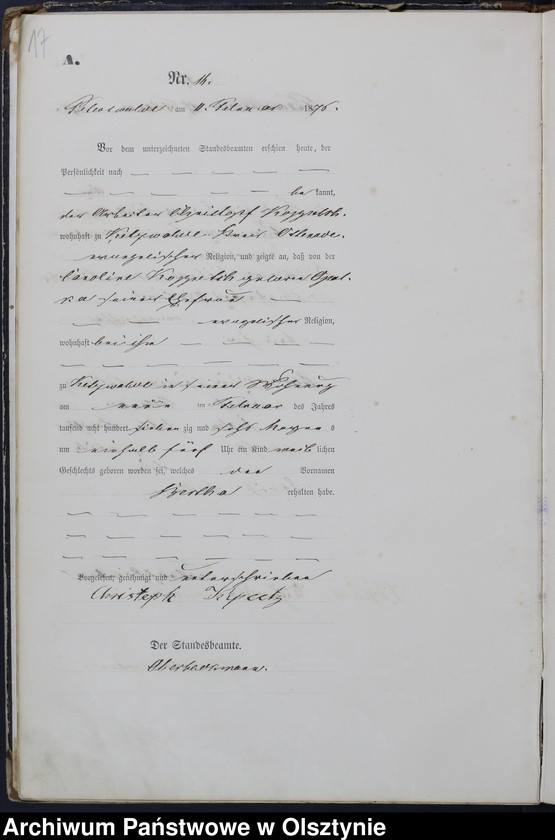 17
A.
Nr. 14.
am 11. Februar 1876.
Vor dem unterzeichneten Standesbeamten erschien heute, der
Persönlichkeit nach
be kannt,
der Arbeiter Christoph
wohnhaft zu Kreis Osterode
evangelischer Religion, und zeigte an, daß von der
Caroline geborene
seiner Ehefrau
evangelischer Religion,
wohnhaft bei ihm
zu in seiner Wohnung
am neun ten Februar des Jahres
tausend acht hundert sieben zig und sechs Morgens
um einhalb fünf Uhr ein Kind weib lichen
Geschlechts geboren worden sei, welches den Vornamen
Bertha erhalten habe.
Vorgelesen, genehmigt und unterschrieben
Christoph
Der Standesbeamte.
Archiwum Państwowe w Olsztynie